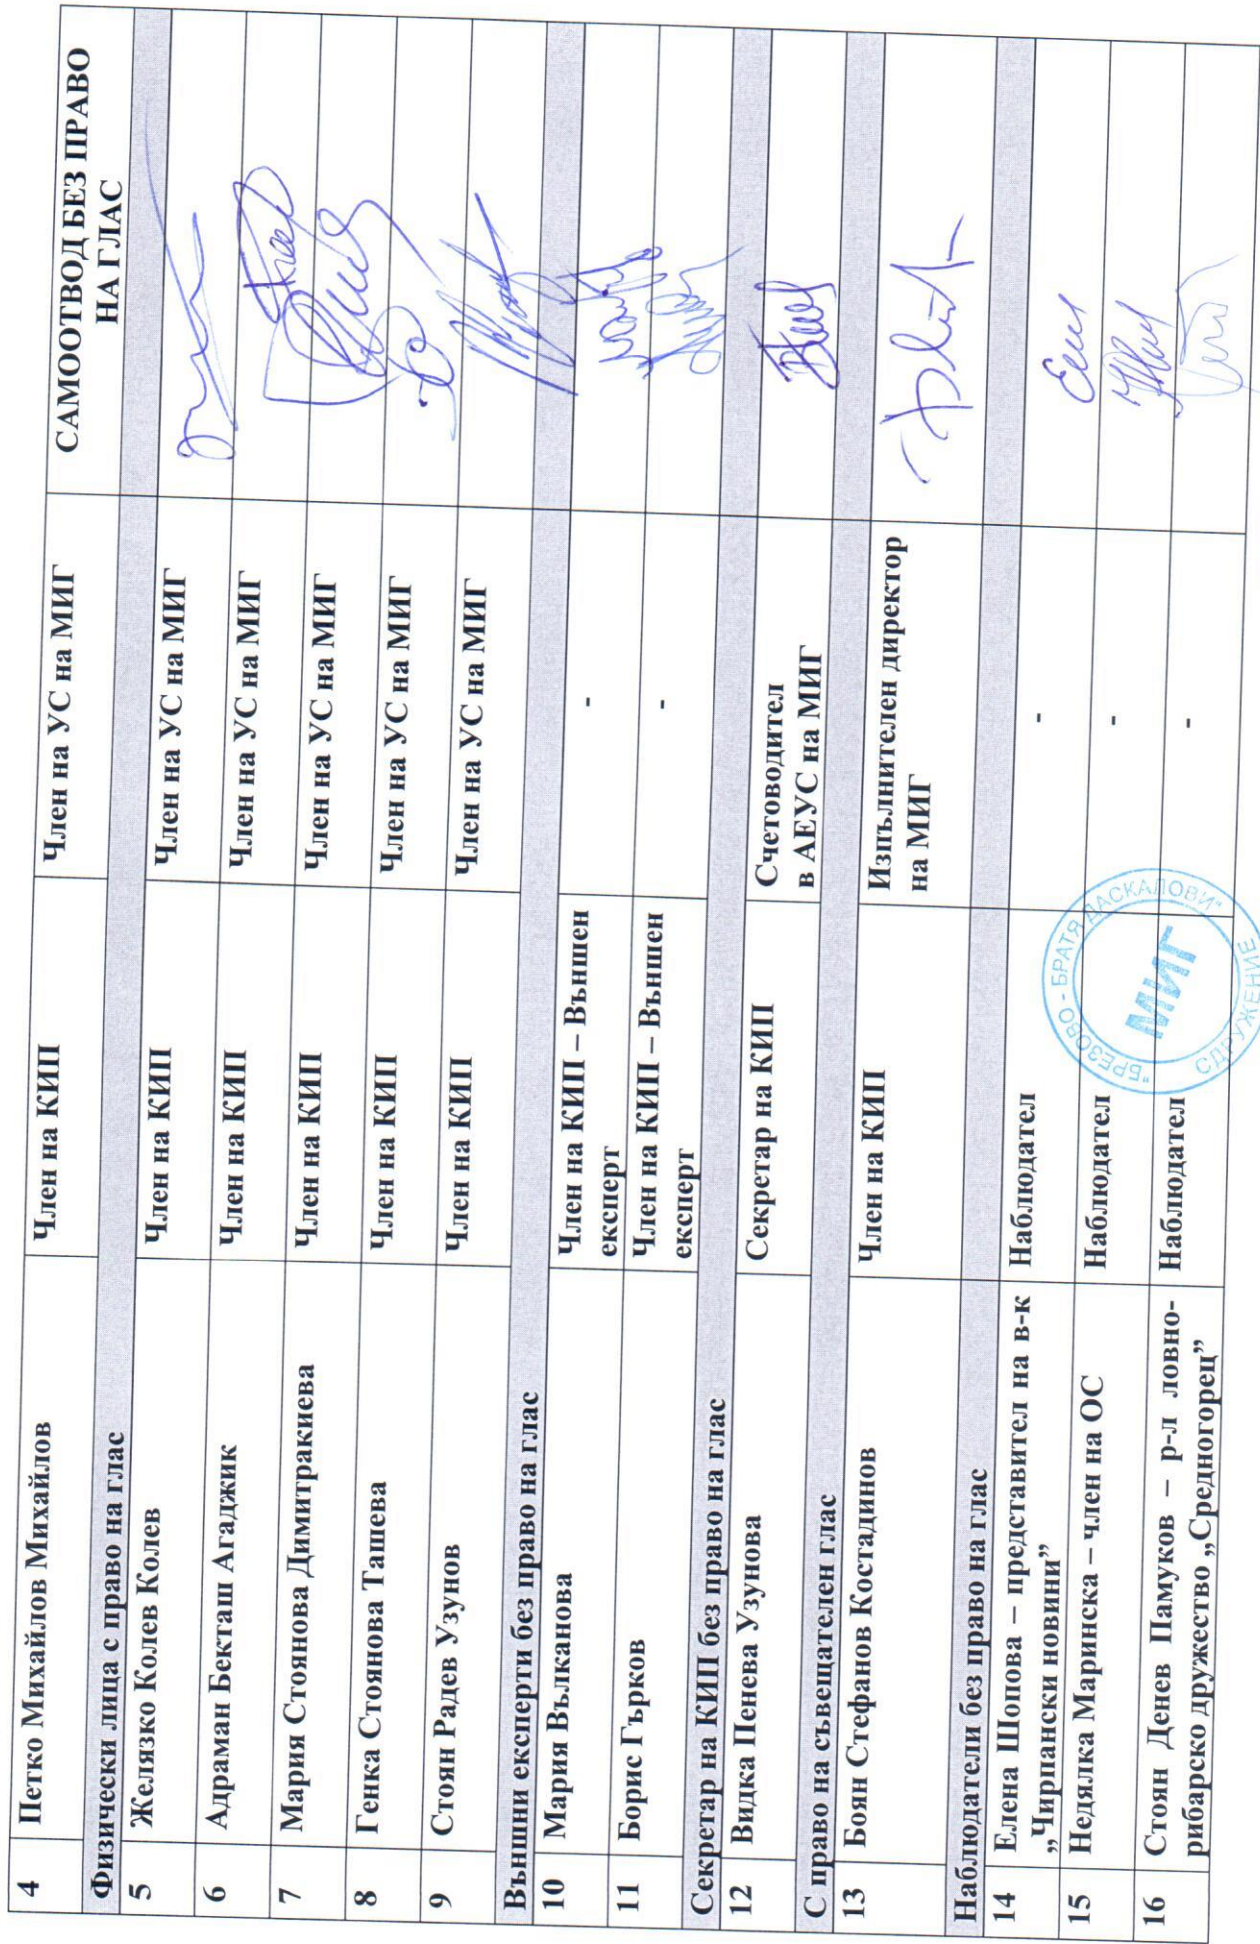 4 Петко Михайлов Михайлов Член на КИП Член на УС на МИГ САМООТВОД БЕЗ ПРАВО
НА ГЛАС
Физически лица с право на глас
5 Желязко Колев Колев Член на КИП Член на УС на МИГ
6 Адраман Бекташ Агаджик Член на КИП Член на УС на МИГ
7 Мария Стоянова Димитракиева Член на КИП Член на УС на МИГ
8 Генка Стоянова Ташева Член на КИП Член на УС на МИГ
9 Стоян Радев Узунов Член на КИП Член на УС на МИГ
Външни експерти без право на глас
10 Мария Вълканова Член на КИП – Външен -
експерт
11 Борис Гърков Член на КИП – Външен -
експерт
Секретар на КИП без право на глас
12 Видка Пенева Узунова Секретар на КИП Счетоводител
в АЕУС на МИГ
С право на съвещателен глас
13 Боян Стефанов Костадинов Член на КИП Изпълнителен директор
на МИГ
Наблюдатели без право на глас
14 Елена Шопова – представител на в-к Наблюдател -
„Чирпански новини”
15 Недялка Маринска – член на ОС Наблюдател -
16 Стоян Денев Памуков – р-л ловно- Наблюдател -
рибарско дружество „Средногорец”
"БРЕЗОВО - БРАТЯ ДАСКАЛОВИ"
МИГ
СДРУЖЕНИЕ